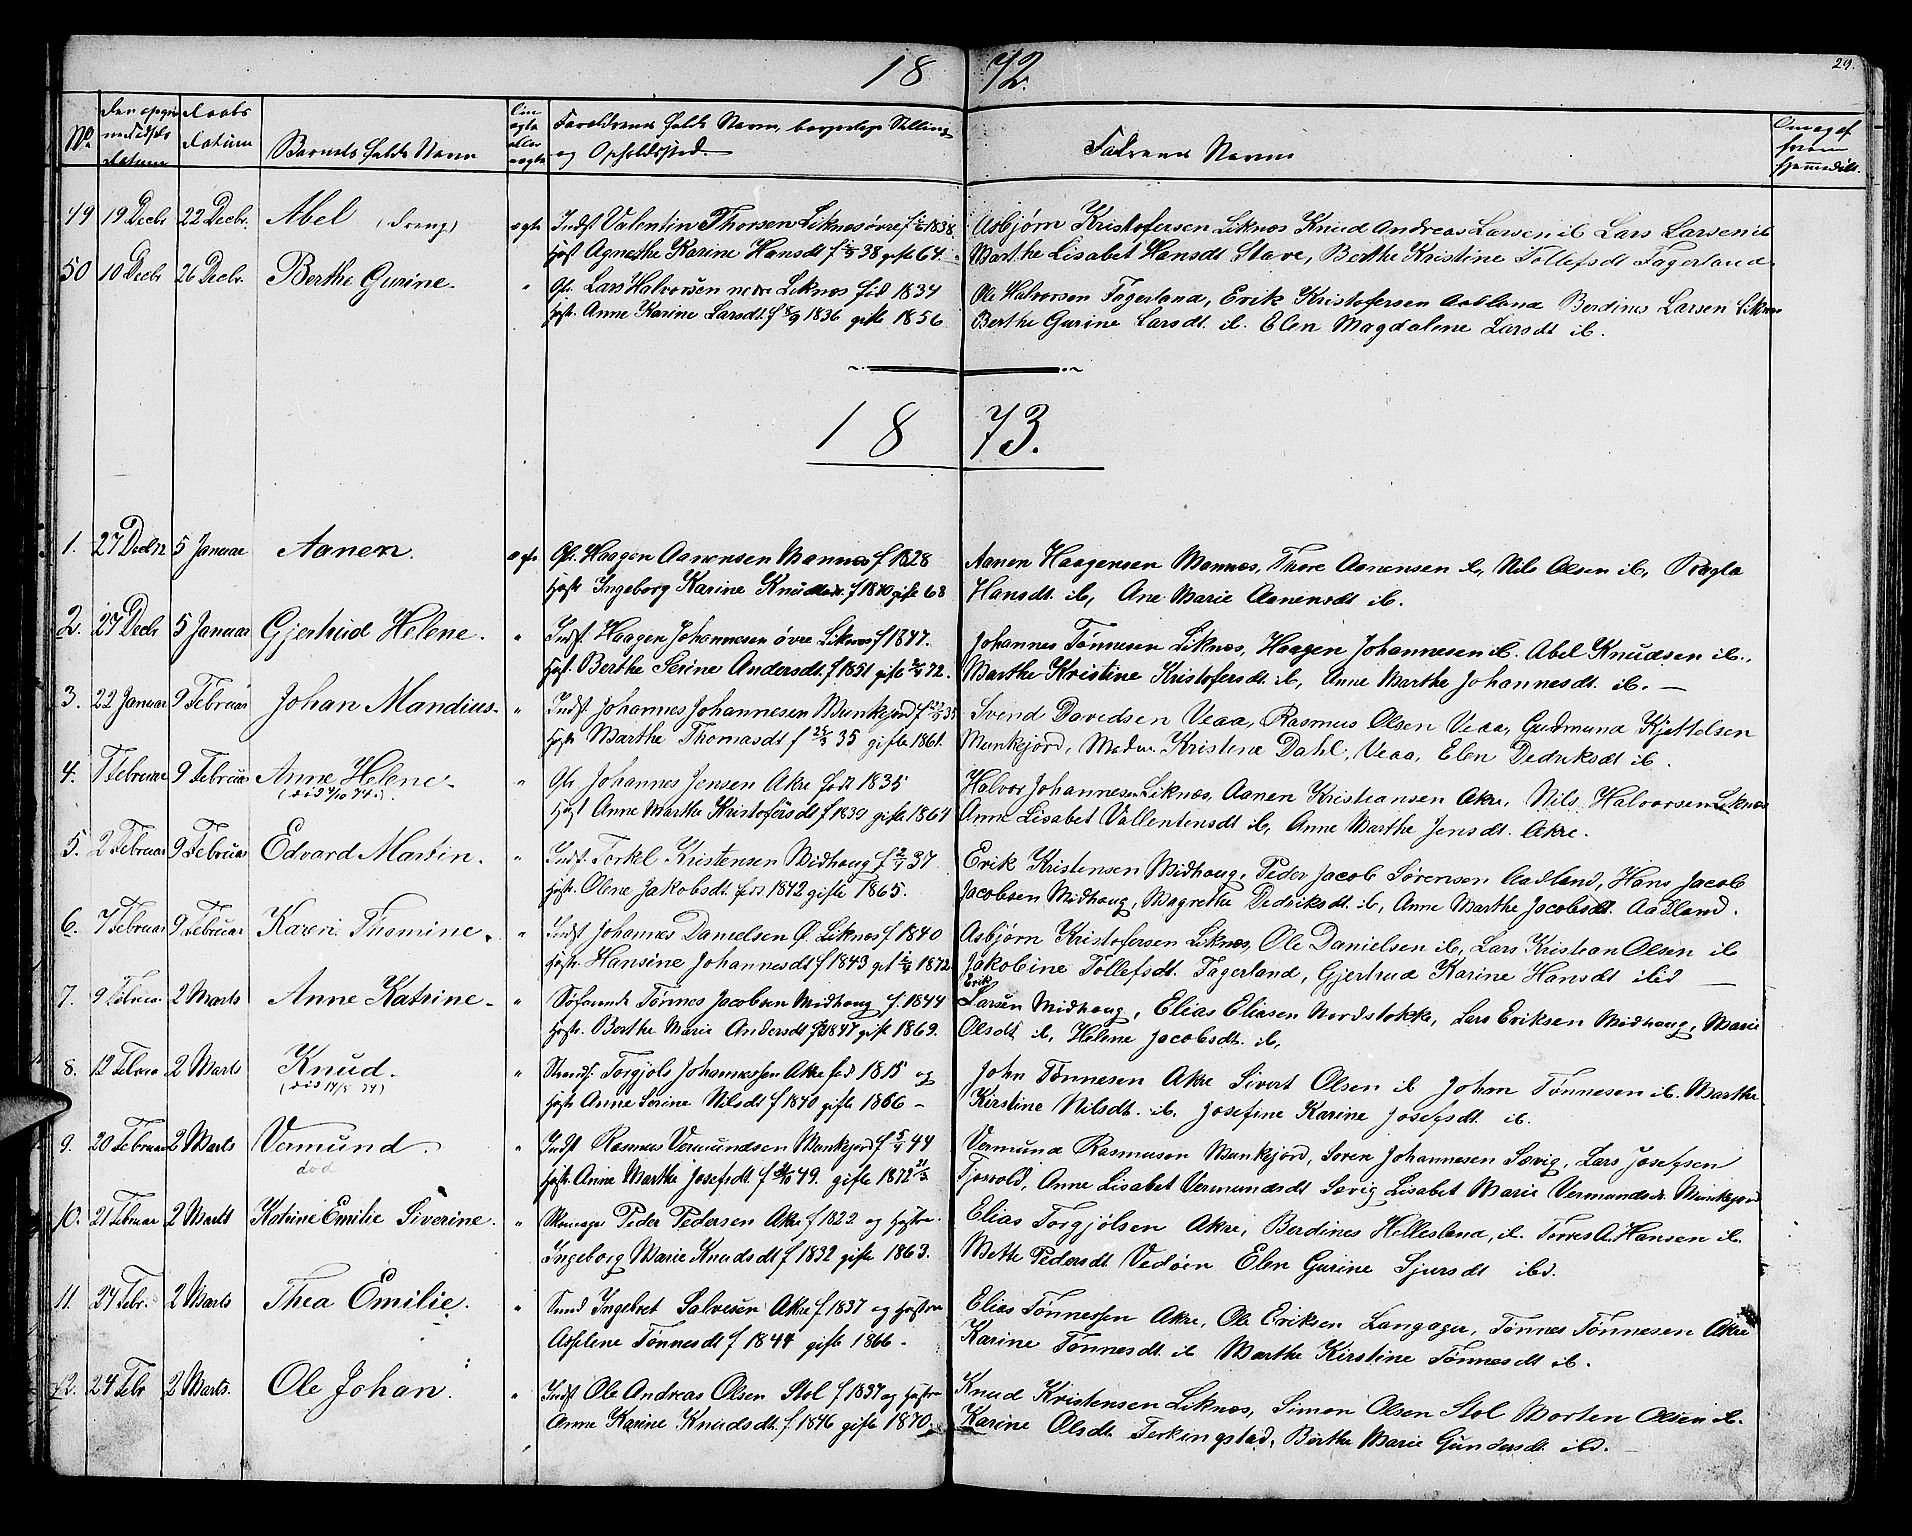 18 72.
29.
No. Den opgivne Fødsels Datum Daabs Datum Barnets fulde Navn Om ægte eller uægte Forældrenes fulde Navn, borgerlige Stilling og Opholdssted. Faddernes Navne
49 19 Decbr 22 Decbr. Abel (dreng) ægte Indst Valentin Thorsen Liknes øvre f 1838 Asbjørn Kristofersen Liknes Knud Andreas Larsen ib Lars Larsen ib
Hust Agnethe Karine Hansdt f 38 gifte 64. Marthe Lisabet Hansdt Stave, Berthe Kristine Tollefsdt Fagerland.
50 10 Decbr 26 Decbr. Berthe Gurine. " Gb. Lars Halvorsen nedre Liknes fød 1834 Ole Halvorsen Fagerland, Erik Kristofersen Aadland Berdines Larsen Liknes
Hust. Anne Karine Larsdt. f 8/9 1836 gifte 1856 Berthe Gurine Larsdt. ib. Elen Magdalene Larsdt ib.
18 73.
1. 27 Decb 72 5 Januar Aanen. ægte Gb. Haagen Aanensen Mannes f 1828 Aanen Haagensen Mannes, Thore Aanensen ib, Nils Olsen ib, Ragla
Hust Ingeborg Karine Knudsdt. f 1840 gifte 68 Hansdt. ib, Ane Marie Aanensdt ib.
2. 27 Decbr 5 Januar Gjertrud Helene. " Indst. Haagen Johannesen øvre Liknes f 1847. Johannes Tønnesen Liknes, Haagen Johannesen ib. Abel Knudsen ib.,
Hust. Berthe Serine Andersdt. f 1851 gifte 72. Marthe Kristine Kristofersdt. ib, Anne Marthe Johannesdt. ib. —
3. 22 Januar 9 Februar Johan Mandius. " Indst. Johannes Johannesen Munkejord f 35 Svend Davidsen Veaa, Rasmus Olsen Veaa, Gudmund Kjettelsen
Hust Marthe Thomasdt f 35 gifte 1861. Munkejord, Mad. Kristine Dahl, Veaa, Elen Dedriksdt ib.
4. 1 Februar 9 Februar Anne Helene. " Gb Johannes Jensen Akre født 1835 Halvor Johannesen Liknes, Aanen Kristiansen Akre, Nils Halvorsen Liknes
(død 9/10 74.). Hust Anne Marthe Kristofersdt f 1839 gifte 1864 Anne Lisabet Vallentensdt ib, Anne Marthe Jensdt. Akre.
5. 2 Februar 9 Februar Edvard Martin. " Indst. Torkel Kristensen Midhaug f 2/4 37 Erik Kristensen Midhaug, Peder Jacob Sørensen Aadland, Hans Jacob
Hust. Olene Jakobsdt. fød 1842 gifte 1865. Jacobsen Midhaug, Magrethe Dedriksdt. ib, Anne Marthe Jacobsdt. Aadland.
6. 7 Februar 9 Februar Karen Thomine. " Indst Johannes Danielsen Ø. Liknes f. 1840 Asbjørn Kristofersen Liknes, Ole Danielsen ib, Lars Kristian Olsen ib
Hust. Hansine Johannesdt f 1843 gft 1872 Jakobine Tollefsdt. Fagerland, Gjertrud Karine Hansdt ibid —
7. 9 Februar 2 Marts Anne Katrine. " Søfarende Tønnes Jacobsen Midhaug f. 1844 Erik Larsen Midhaug, Elias Eliasen Nordstokke, Lars Eriksen Midhaug, Marie
Hust. Berthe Marie Andersdt f 1847 gifte 1869. Olsdt ib, Helene Jacobsdt. ib,
8. 12 Februar 2 Marts Knud. " Strands. Torgjols Johannessen Akre fød 1815 og John Tønnesen Akre Sivert Olsen ib Johan Tønnesen ib. Marthe
(død 14/5 74) Hust Anne Serine Nilsdt f 1840 gifte 1866 — Kirstine Nilsdt. ib. Josefine Karine Josefsdt ib.
9. 20 Februar 2 Marts Vermund. " Indst Rasmus Vermundsen Munkejord f 5/4 44 Vermund Rasmusen Munkejord, Søren Johannesen Sævig, Lars Josefsen
død Hust. Anne Marthe Josefsdt. f 49. gifte 1872 Tjøsvold, Anne Lisabet Vermundsdt Sævig Lisabet Marie Vermundsdt. Munkejord
10. 21 Februar 2 Marts Katrine Emilie Siverine. " Skomager Peder Pedersen Akre f 1822 og Hustru Elias Torgjølsen Akre, Berdines Hellesland, ib. Tønnes A. Hansen ib.
Ingeborg Marie Knudsdt f 1832 gifte 1863. Mette Pedersdt Vedøen Elen Gurine Sjursdt ibd.
11. 24 Febr. 2 Marts Thea Emilie. " Smed Ingebret Salvesen Akre f 1837 og Hustru Elias Tønnessen Akre, Ole Eriksen Langager, Tønnes Tønnesen Akre
Asselene Tønnesdt f 1844 gifte 1866. Karine Tønnesdt. ib Marthe Kirstine Tønnesdt ib.
12. 24 Febr 2 Marts. Ole Johan. " Indst Ole Andreas Olsen Stol f 1837 og Hustru Knud Kristensen Liknes, Simon Olsen Stol Morten Olsen ib.
Anne Karine Knudsdt. f. 1846 gifte 1870. Karine Olsdt Ferkingstad, Berthe Marie Gundersdt. ibd.